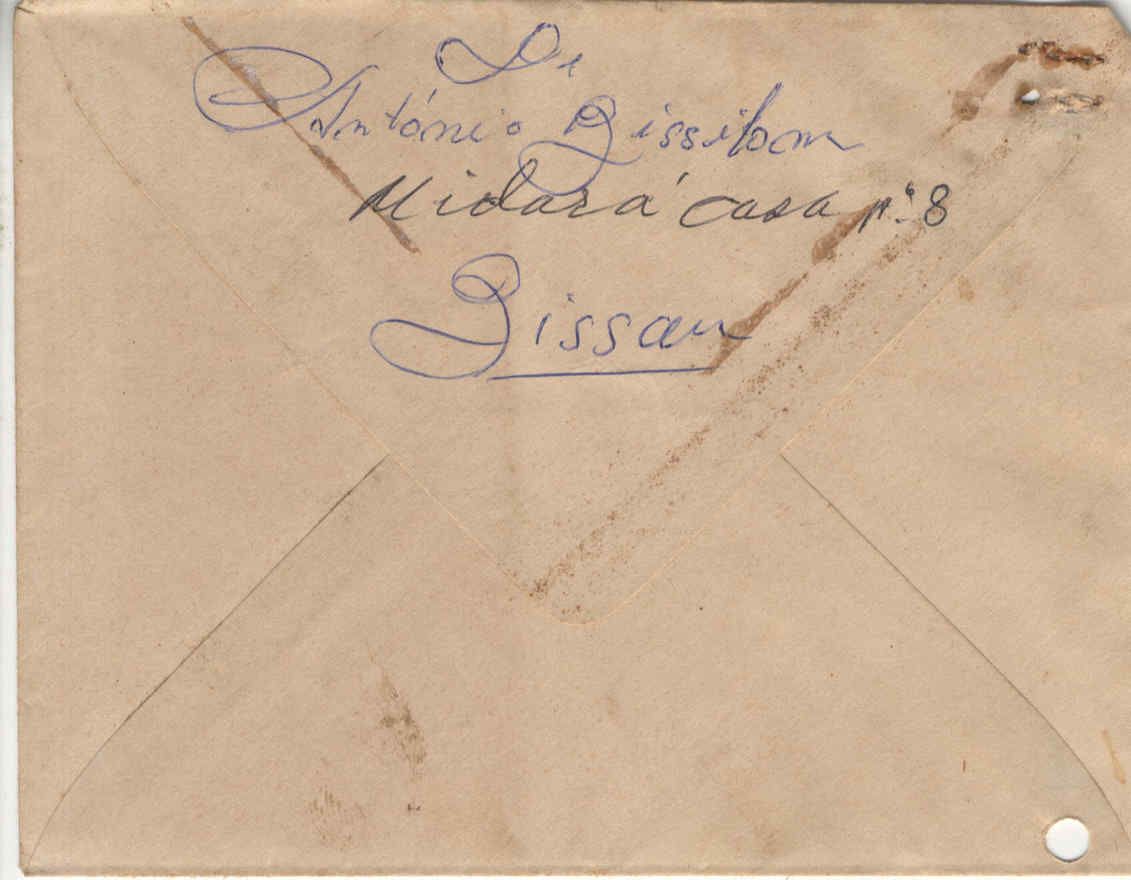 De
António Bissilom
Midará casa nº 8
Bissau